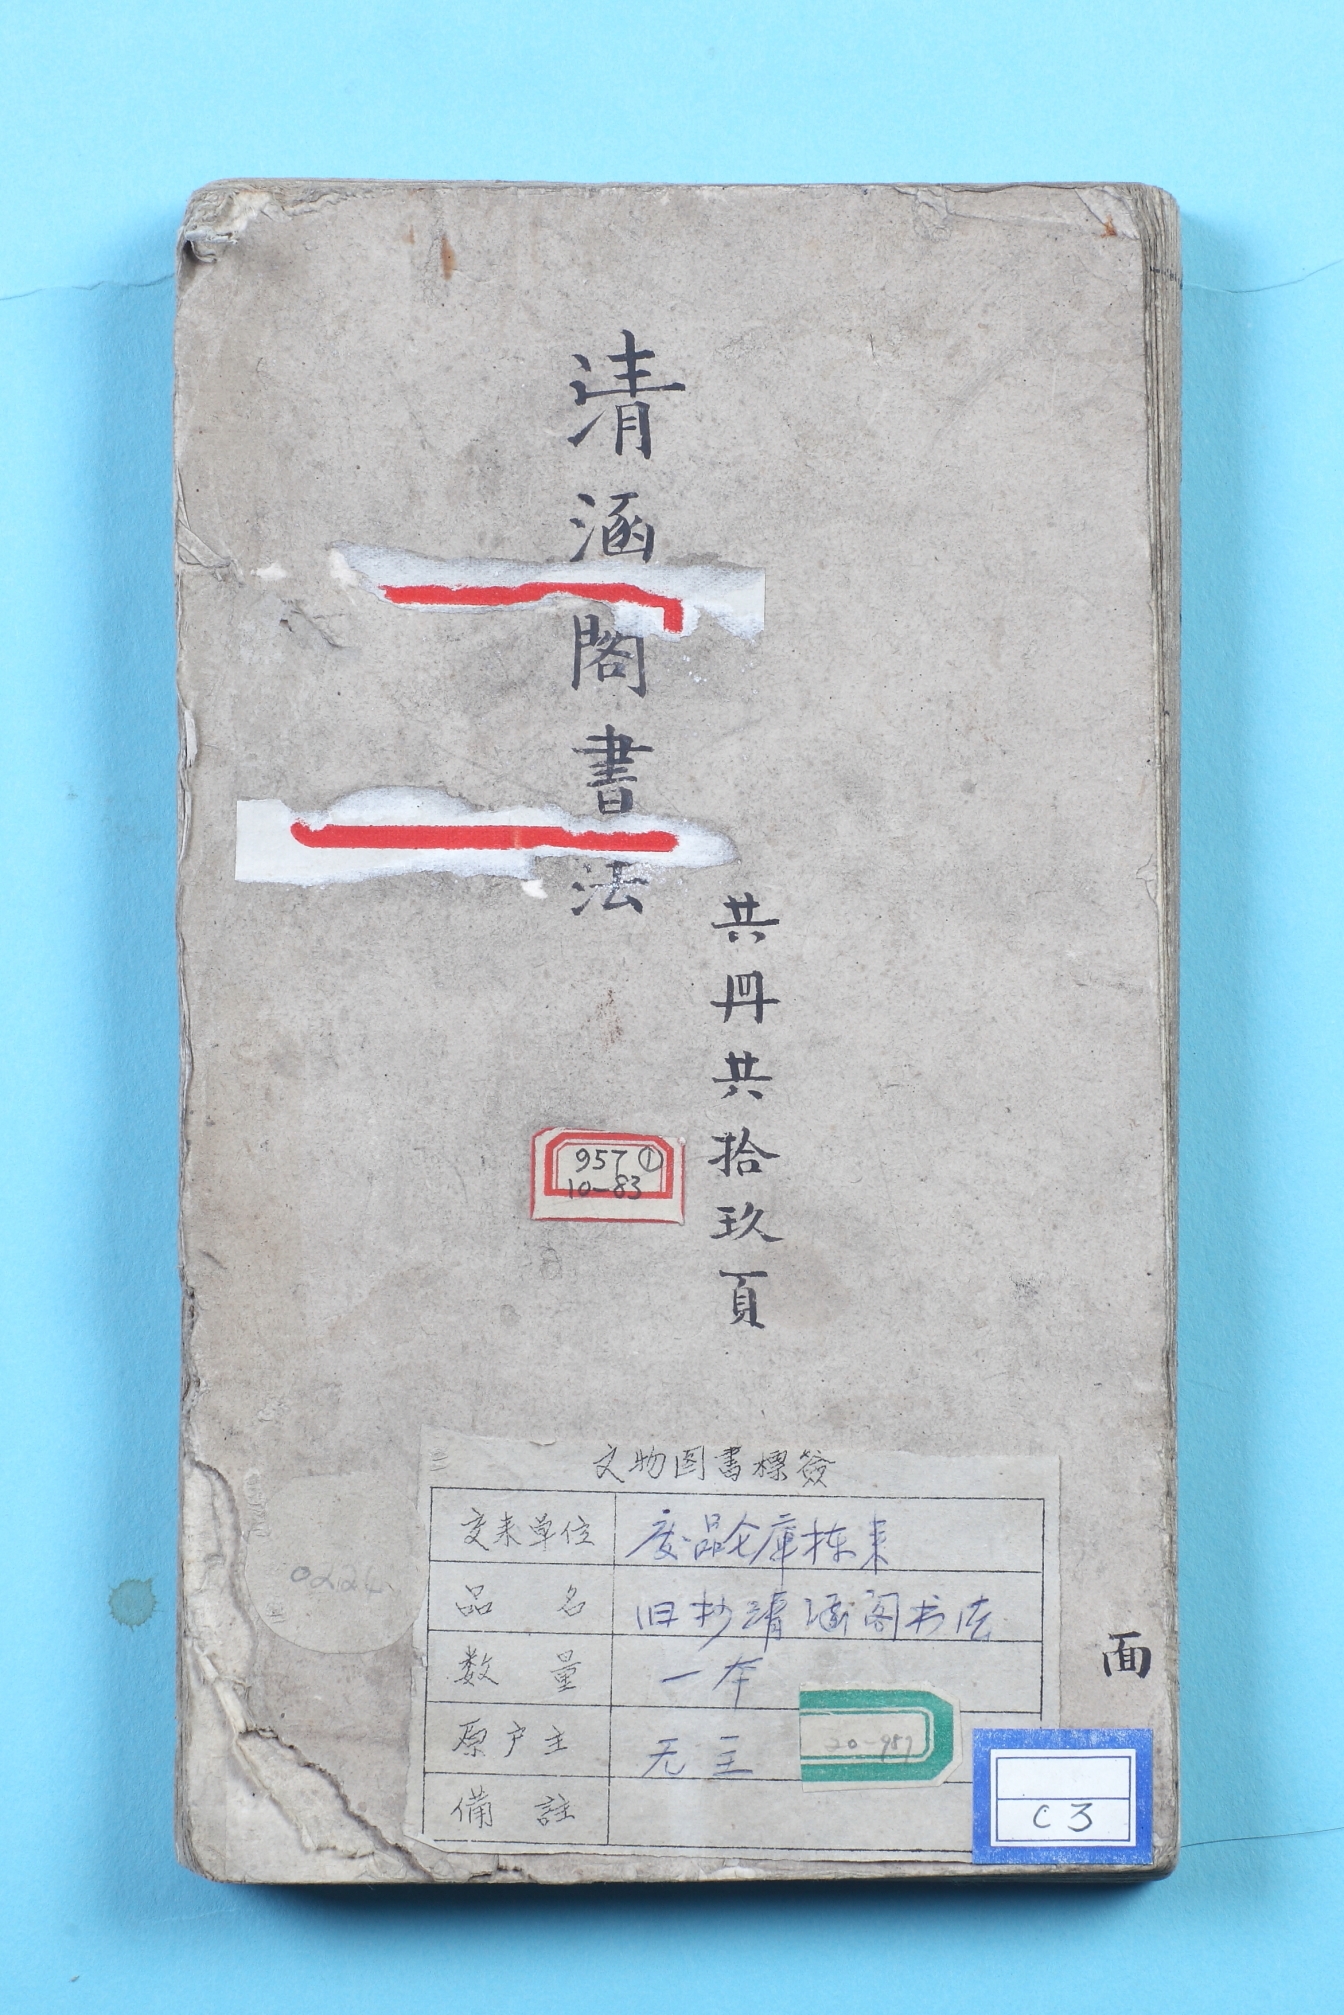 清涵閣書法
共冊共拾玖頁
957①
10-83
文物图書標簽
交来单位 废品仓庫拣来
品名 旧抄清涵阁书法
数量 一本
原户主 无主
備註
20-987
面
C3